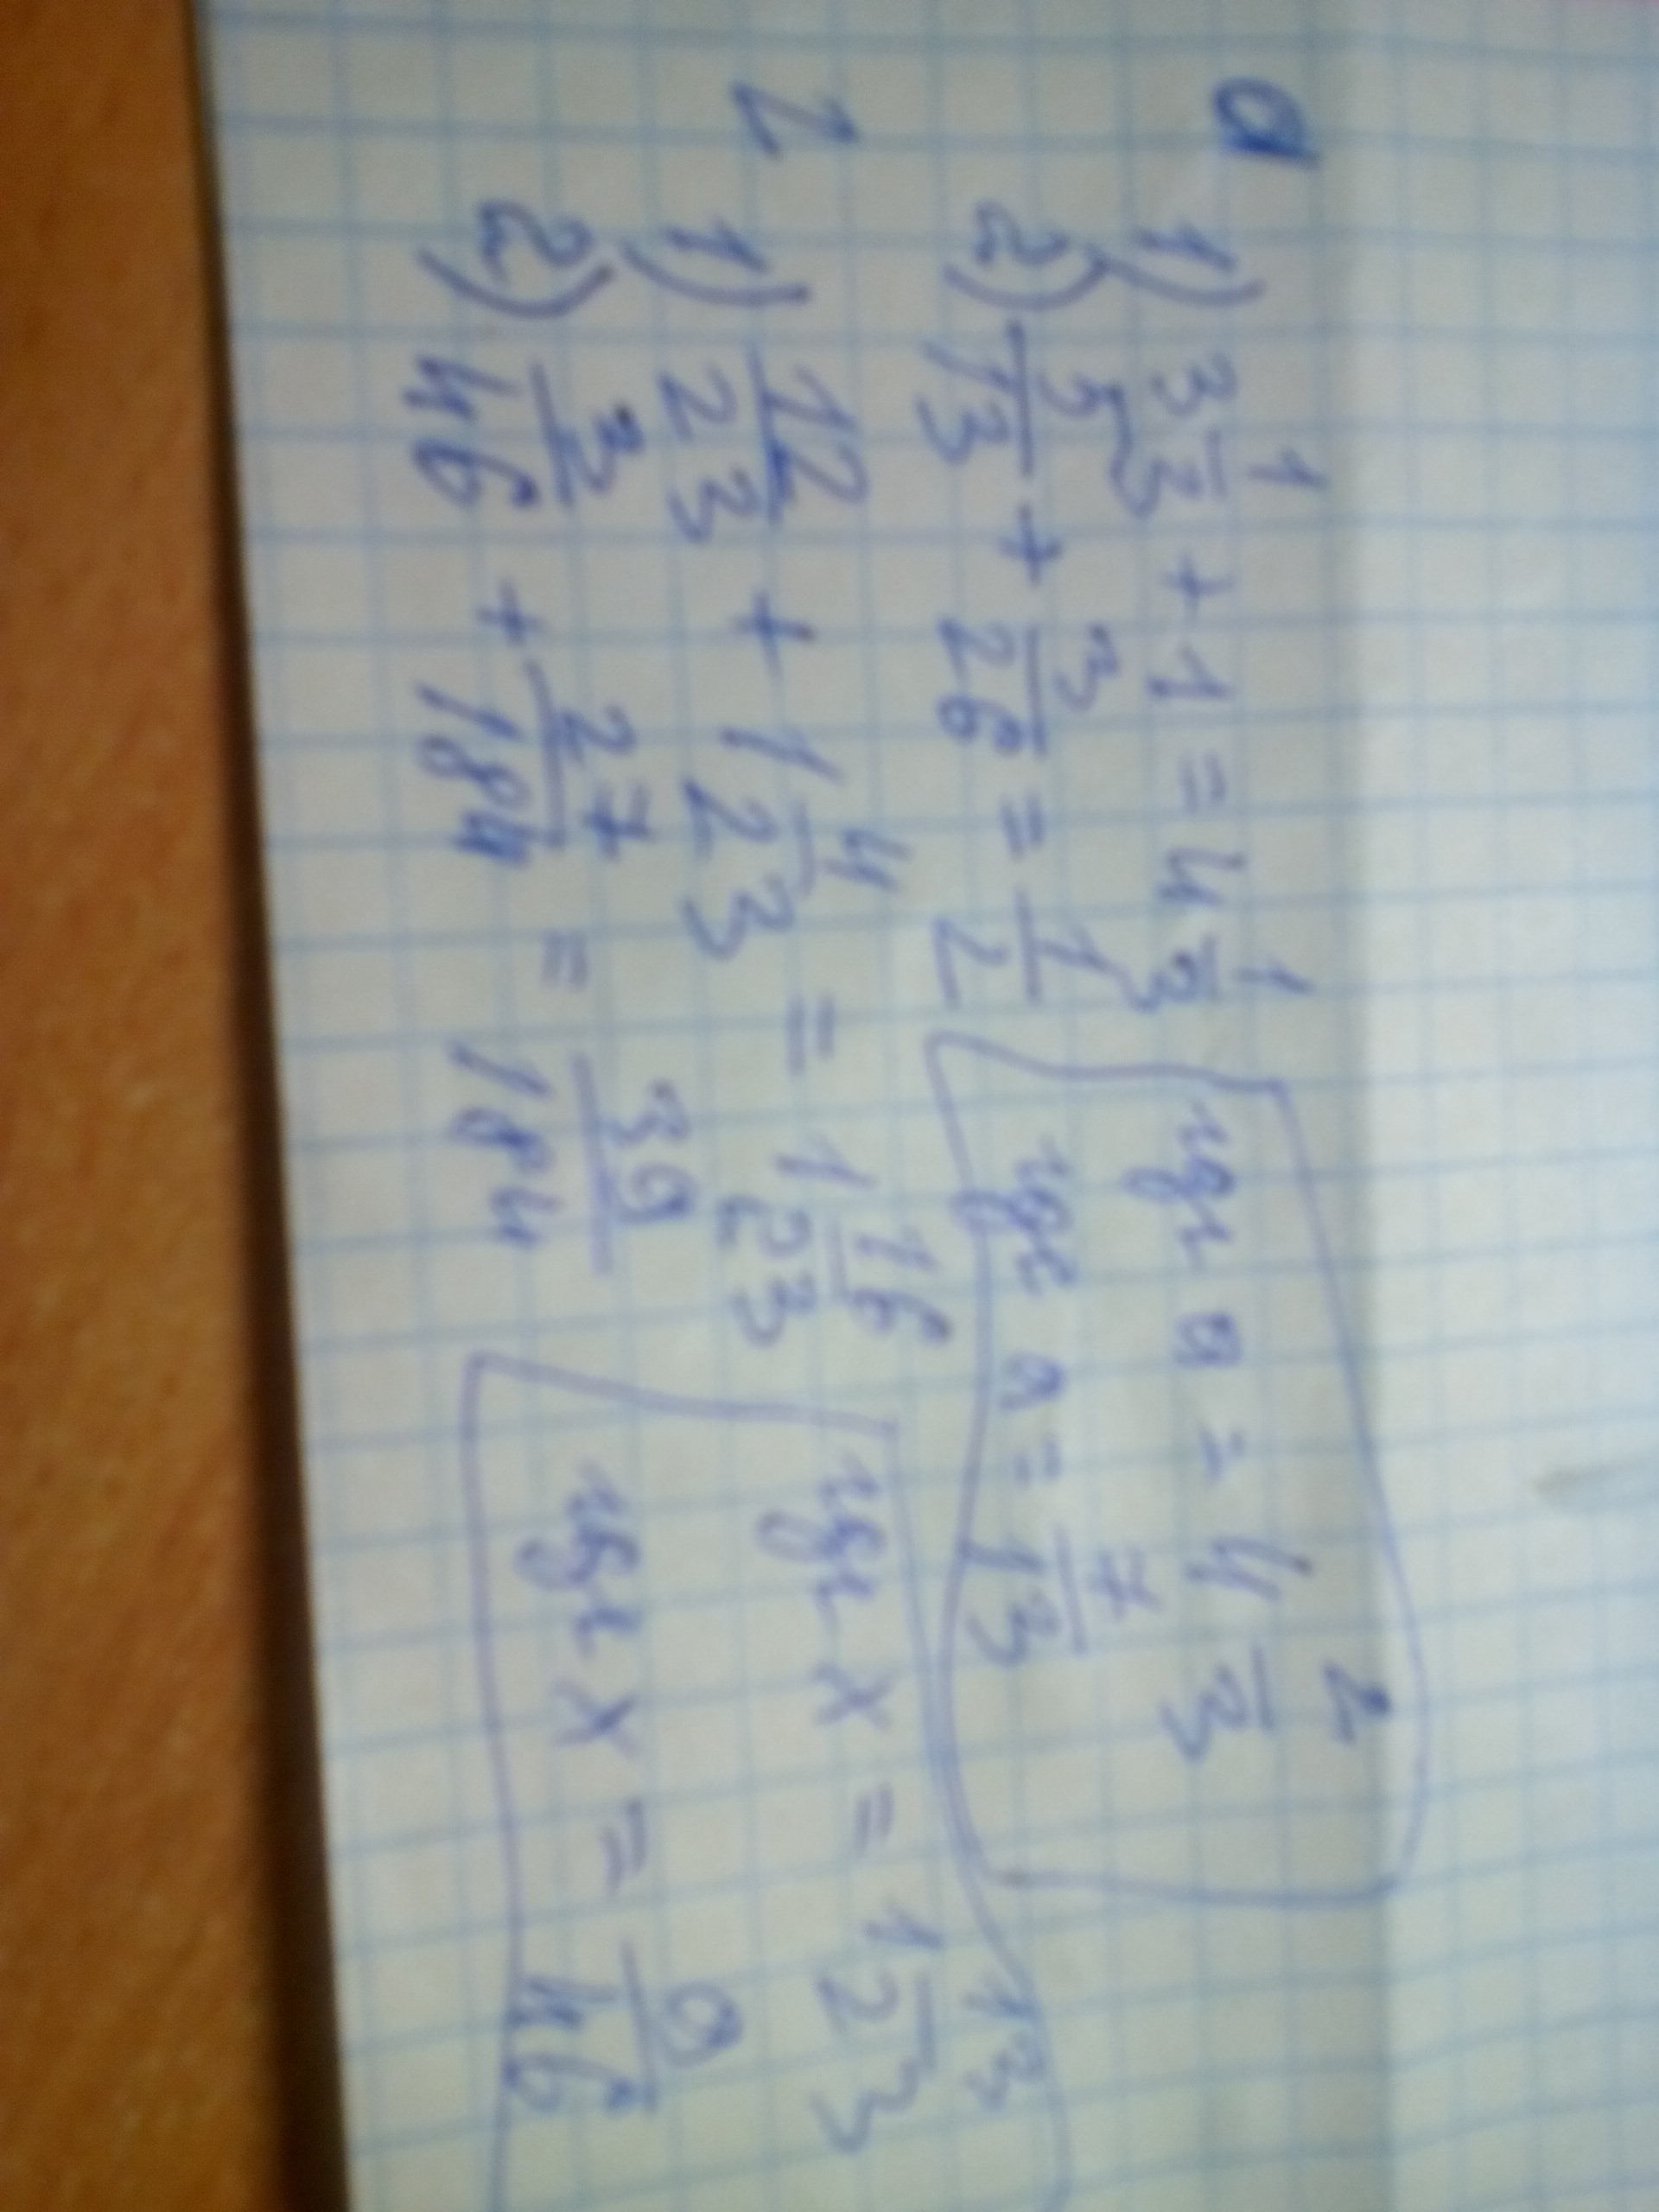 a 1) 3 1/3 + 1 = 4 1/3 a = 4 2/3
2) 5/13 + 3/26 = 1/2 a = 7/13
2 1) 12/23 + 1 4/23 = 1 16/23 x = 1 13/23
2) 3/46 + 27/184 = 39/184 x = 9/46